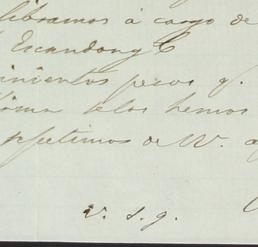 libramos á cargo de
Escandon y Cª
inientos pesos q.
selos hemos
repetimos de W. a
v. s. g.